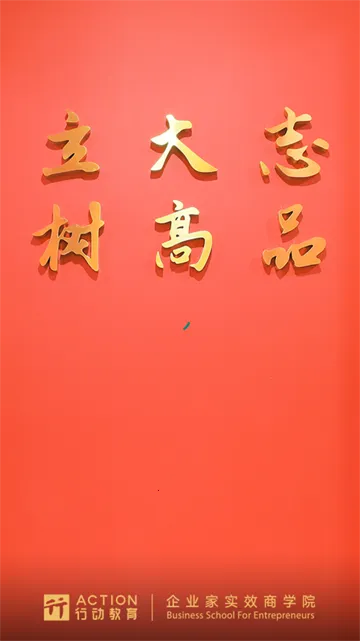 立大志
树高品
ACTION
行动教育
企业家实效商学院
Business School For Entrepreneurs